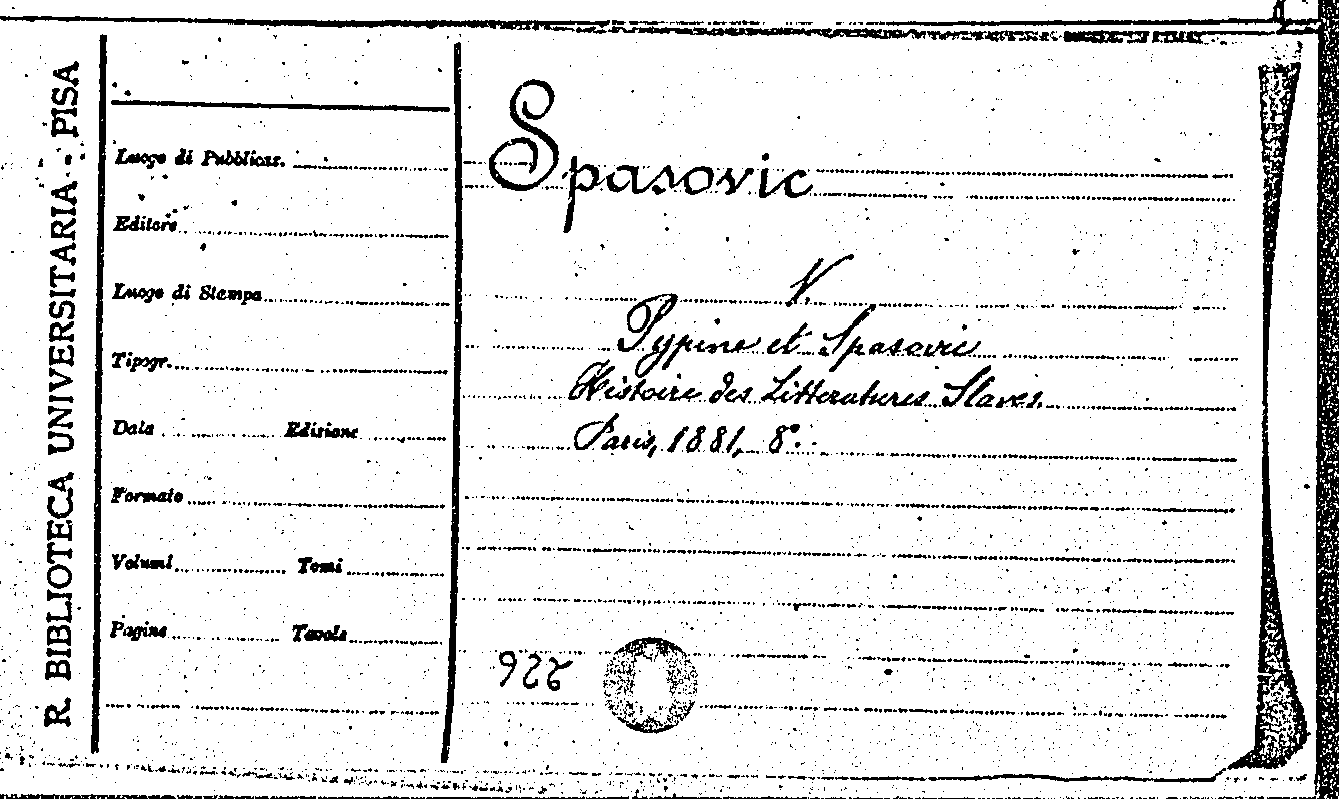 R. BIBLIOTECA UNIVERSITARIA - PISA
Luogo di Pubblicaz.
Editore
Luogo di Stampa
Tipogr.
Data Edizione
Formato
Volumi Tomi
Pagine Tavole
Spasovic
V.
Pypine et Spasovic
Histoire des Litteratures Slaves.
Paris, 1881, 8°.